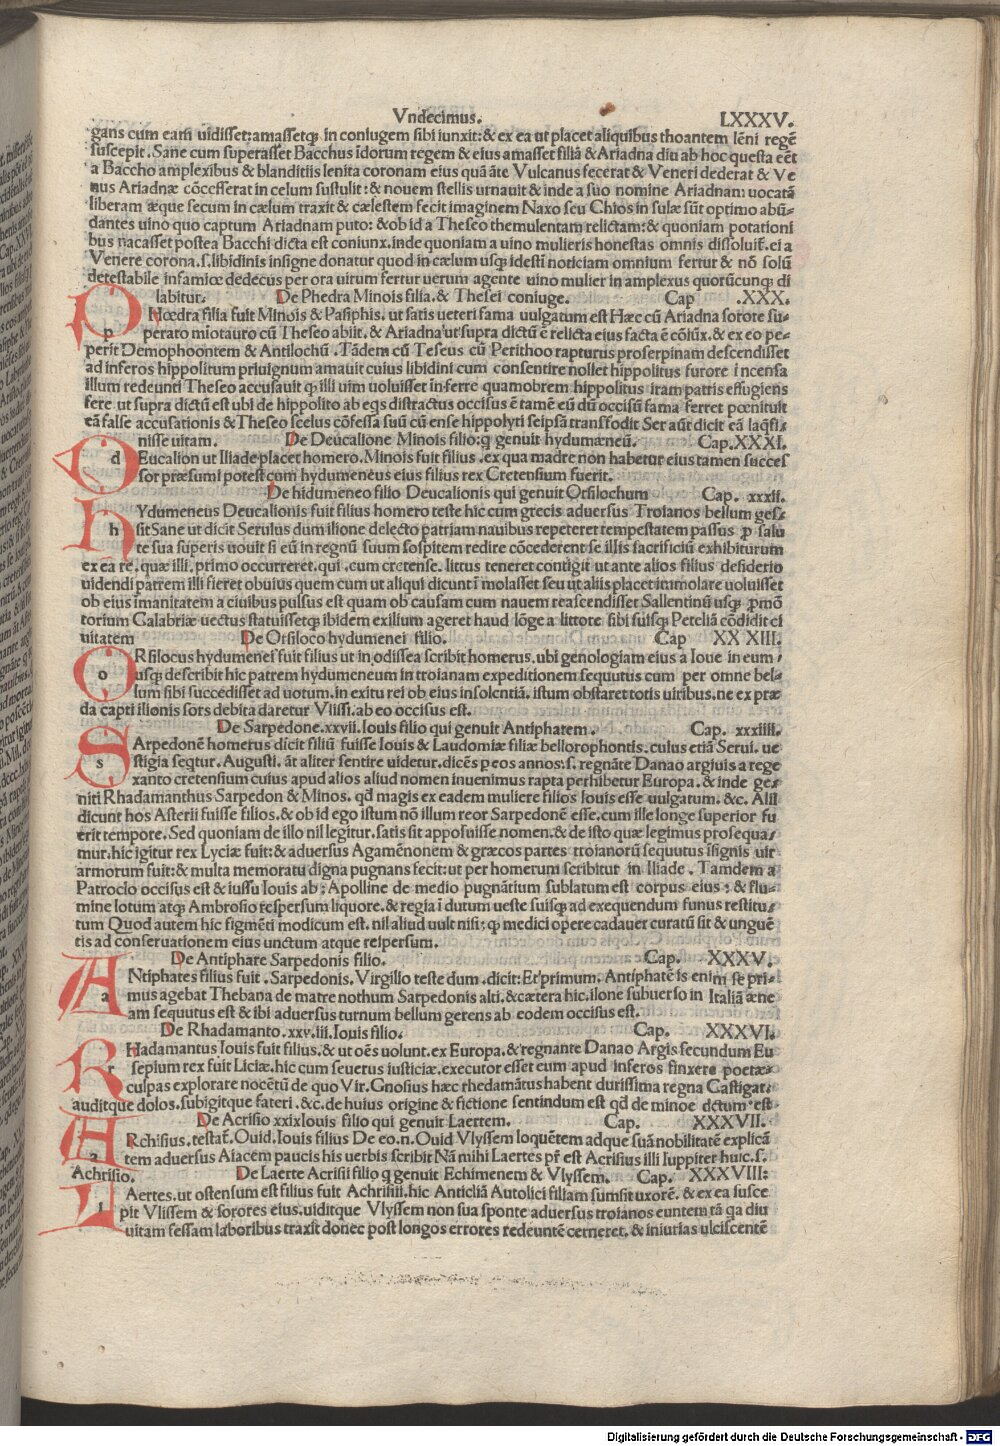 Vndecimus. LXXXV.
gans cum eam uidisset: amassetqꝫ in coniugem sibi iunxit: & ex ea ut placet aliquibus thoantem lēni regē
suscepit. Sane cum superasset Bacchus idorum regem & eius amasset filiā & Ariadna diu ab hoc questa eēt
a Baccho amplexibus & blanditiis lenita coronam eius quā āte Vulcanus fecerat & Veneri dederat & Ve
nus Ariadnæ cōcesserat in celum sustulit: & nouem stellis urnauit & inde a suo nomine Ariadnam uocatā
liberam æque secum in cælum traxit & cælestem fecit imaginem Naxo seu Chios in sulæ sūt optimo abū-
dantes uino quo captum Ariadnam puto: & ob id a Theseo themulentam relictam: & quoniam potationi
bus uacasset postea Bacchi dicta est coniunx. inde quoniam a uino mulieris honestas omnis dissoluit̄. ei a
Venere corona. s. libidinis insigne donatur quod in cælum usqꝫ idestī noticiam omnium fertur & nō solū
detestabile infamiœ dedecus per ora uirum fertur uerum agente uino mulier in amplexus quorūcunqꝫ di
labitur. De Phedra Minois filia. & Thesei coniuge. Cap .XXX.
p Hœdra filia fuit Minois & Pasiphis. ut satis ueteri fama uulgatum est Hæc cū Ariadna sorote su-
perato miotauro cū Theseo abiit. & Ariadna ut supra dictū ē relicta eius facta ē cōiūx. & ex eo pe-
perit Demophoontem & Antilochū. Tādem cū Teseus cū Perithoo rapturus proserpinam descendisset
ad inferos hippolitum priuignum amauit cuius libidini cum consentire nollet hippolitus furore incensa
illum redeunti Theseo accusauit qꝫ illi uim uoluisset inferre quamobrem hippolitus iram patris effugiens
fere ut supra dictū est ubi de hippolito ab eqs distractus occisus ē tamē eū dū occisū fama ferret pœnituit
eā false accusationis & Theseo scelus cōfessa suū cū ense hippolyti seipsā transfodit Ser aūt dicit eā laqsi-
nisse uitam. De Deucalione Minois filio: q genuit hydumæneū. Cap. XXXI.
d Eucalion ut Iliade placet homero. Minois fuit filius. ex qua madre non habetur eius tamen succes
sor præsumi potest cum hydumeneus eius filius rex Cretensium fuerit.
De hidumeneo filio Deucalionis qui genuit Orsilochum Cap. xxxii.
h Ydumeneus Deucalionis fuit filius homero teste hic cum grecis aduersus Troianos bellum ges-
sit Sane ut dicit Seruius dum ilione delecto patriam nauibus repeteret tempestatem passus p salu
te sua superis uouit si eū in regnū suum sospitem redire cōcederent se illis sacrificiū exhibiturum
ex ea re. quæ illi. primo occurreret. qui. cum cretense. littus teneret contigit ut ante alios filius desiderio
uidendi patrem illi fieret obuius quem cum ut aliqui dicunt īmolasset seu ut aliis placet immolare uoluisset
ob eius īmanitatem a ciuibus pulsus est quam ob causam cum nauem reascendisset Sallentinū usqꝫ pmō
torium Calabriæ uectus statuissetqꝫ ibidem exilium ageret haud lōge a littore sibi suisqꝫ Peteliā cōdidit ci
uitatem De Orsiloco hydumenei filio. Cap XX XIII.
o Rsilocus hydumenei fuit filius ut in odissea scribit homerus. ubi genologiam eius a Ioue in eum
usqꝫ describit hic patrem hydumeneum in troianam expeditionem sequutus cum per omne bel-
lum sibi successisset ad uotum. in exitu rei ob eius insolentiā. istum obstaret totis uiribus. ne ex præ
da capti ilionis sors debita daretur Vlissi. ab eo occisus est.
De Sarpedone. xxvii. Iouis filio qui genuit Antiphatem. Cap. xxxiiii.
s Arpedonē homerus dicit filiū fuisse Iouis & Laudomiæ filiæ bellorophontis. cuius etiā Serui. ue
stigia seqtur. Augusti. āt aliter sentire uidetur. dicēs p eos annos: s. regnāte Danao argiuis a rege
xanto cretensium cuius apud alios aliud nomen inuenimus rapta perhibetur Europa. & inde ge-
niti Rhadamanthus Sarpedon & Minos. qd magis ex eadem muliere filios Iouis esse uulgatum. &c. Alii
dicunt hos Asterii fuisse filios. & ob id ego istum nō illum reor Sarpedonē esse. cum ille longe superior fu
erit tempore. Sed quoniam de illo nil legitur. satis sit apposuisse nomen. & de isto quæ legimus prosequa-
mur. hic igitur rex Lyciæ fuit: & aduersus Agamēnonem & græcos partes troianorū sequutus īsignis uir
armorum fuit: & multa memoratu digna pugnans fecit: ut per homerum scribitur in Iliade. Tamdem a
Patroclo occisus est & iussu Iouis ab: Apolline de medio pugnātium sublatum est corpus eius: & flu-
mine lotum atqꝫ Ambrosio respersum liquore. & regia īdutum ueste suisqꝫ ad exequendum funus restitu-
tum Quod autem hic figmēti modicum est. nil aliud uult nisi: qꝫ medici opere cadauer curatū sit & unguē
tis ad conseruationem eius unctum atque reipersum.
De Antiphare Sarpedonis filio. Cap. XXXV.
a Ntiphates filius fuit. Sarpedonis. Virgilio teste dum. dicit: Et primum. Antiphatē is enim se pri-
mus agebat Thebana de matre nothum Sarpedonis alti. & cætera hic. ilone subuerso in Italiā æne
am sequutus est & ibi aduersus turnum bellum gerens ab eodem occisus est.
De Rhadamanto. xxv. iii. Iouis filio. Cap. XXXVI.
r Hadamantus Iouis fuit filius. & ut oēs uolunt. ex Europa. & regnante Danao Argis secundum Eu
sepium rex fuit Liciæ. hic cum seuerus iusticiæ. executor esset eum apud inferos finxere poetæ
culpas explorare nocētū de quo Vir. Gnosius hæc rhedamātus habent durissima regna Castigat.
auditque dolos. subigitque fateri. &c. de huius origine & fictione sentindum est qd de minoe dctum est
De Acrisio xxix Iouis filio qui genuit Laertem. Cap. XXXVII.
a Rchisius. testat̄. Ouid. Iouis filius De eo. n. Ouid Vlyssem loquētem adque suā nobilitatē explicā
tem aduersus Aiacem paucis his uerbis scribit Nā mihi Laertes pr̄ est Acrisius illi Iuppiter huic. s.
Achrisio. De Laerte Acrisii filio q genuit Echimenem & Vlyssem. Cap. XXXVIII:
l Aertes. ut ostensum est filius fuit Achrisiiii. hic Anticliā Autolici filiam sumsit uxorē. & ex ea susce
pit Vlissem & sorores eius. uiditque Vlyssem non sua sponte aduersus troianos euntem tā qa diu
uitam fessam laboribus traxit donec post longos errores redeuntē cerneret. & iniurias ulciscentē
Digitalisierung gefördert durch die Deutsche Forschungsgemeinschaft - DFG